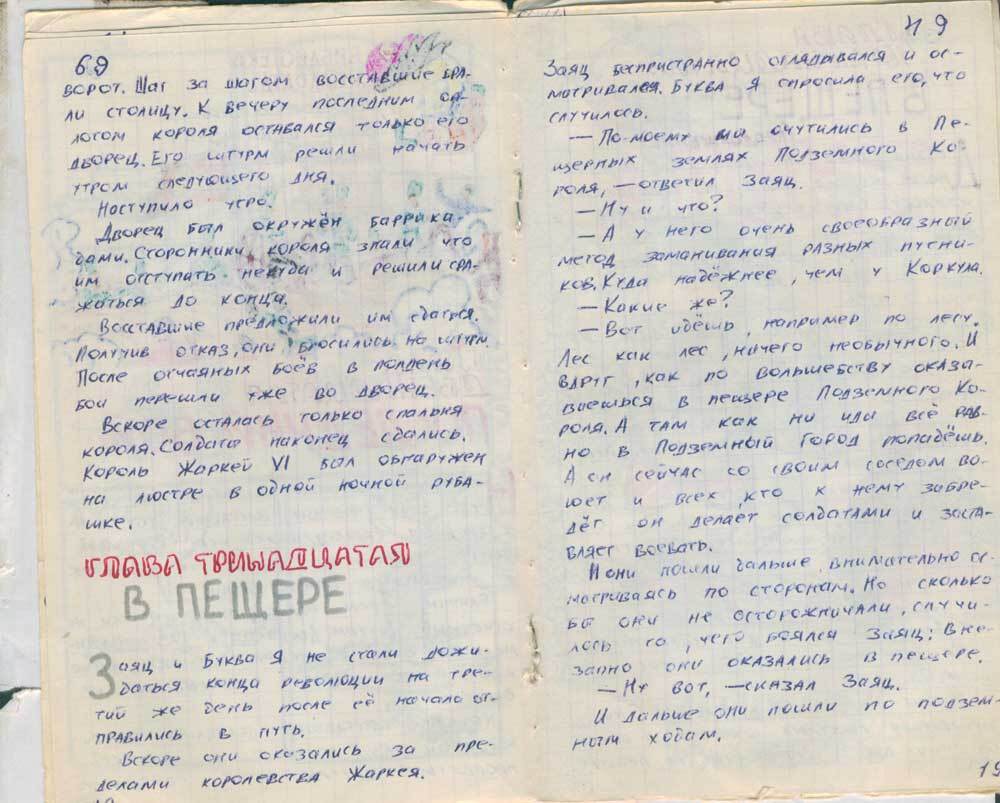 69
ворот. Шаг за шагом восставшие бра-
ли столицу. К вечеру последним оп-
лотом короля оставался только его
дворец. Его штурм решили начать
утром следующего дня.
Наступило утро.
Дворец был окружён баррика-
дами. Сторонники короля знали что
им отступать некуда и решили сра-
жаться до конца.
Восставшие предложили им сдаться.
Получив отказ, они бросились на штурм.
После отчаяных боёв в полдень
бои перешли уже во дворец.
Вскоре осталась только спальня
короля. Солдаты наконец сдались.
Король Жаркей VI был обнаружен
на люстре в одной ночной руба-
шке.
ГЛАВА ТРИНАДЦАТАЯ
В ПЕЩЕРЕ
Заяц и Буква Я не стали дожи-
даться конца революции на тре-
тий же день после её начало от-
правились в путь.
Вскоре они оказались за пре-
делами королевства Жаркея.
49
Заяц беспристранно оглядывался и ос-
матривался. Буква Я спросила его, что
случилось.
— По-моему мы очутились в Пе-
щерных землях Подземного Ко-
роля, — ответил Заяц.
— Ну и что?
— А у него очень своеобразный
метод заманивания разных путни-
ков. Куда надёжнее, чем у Коркула.
— Какие же?
— Вот идёшь, например по лесу.
Лес как лес, ничего необычного. И
вдруг, как по волшебству оказы-
ваешься в пещере Подземного Ко-
роля. А там как ни иди всё рав-
но в Подземный Город попадёшь.
А он сейчас со своим соседом во-
юет и всех, кто к нему забре-
дёт он делает солдатами и заста-
вляет воевать.
И они пошли дальше внимательно ос-
матриваясь по сторонам. Но сколько
бы они не осторожничали, случи-
лось то, чего боялся Заяц: Вне-
запно они оказались в пещере.
— Ну вот, — сказал Заяц.
И дальше они пошли по подзем-
ным ходам.
19